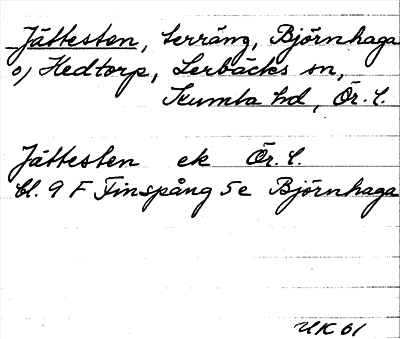 Jättesten, terräng, Björnhaga
o, Hedtorp, Lerbäcks sn,
Kumla hd, Ör. l.
Jättesten ek Ör. l.
bl. 9 F Finspång 5e Björnhaga
UK 61